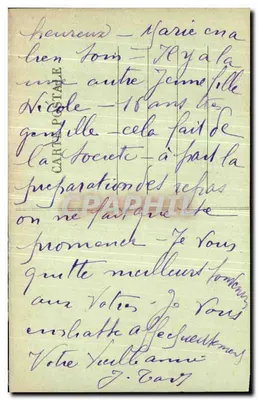 heureux - Marie en a
bien soin - Il y a là
une autre jeune fille
Nicole - 16 ans
gentille - cela fait de
la société - à part la
préparation des repas
on ne fait que se
promener - Je vous
quitte meilleurs
aux vôtres Je vous
Votre vieille amie
CARTE POSTALE
CPAPHIL